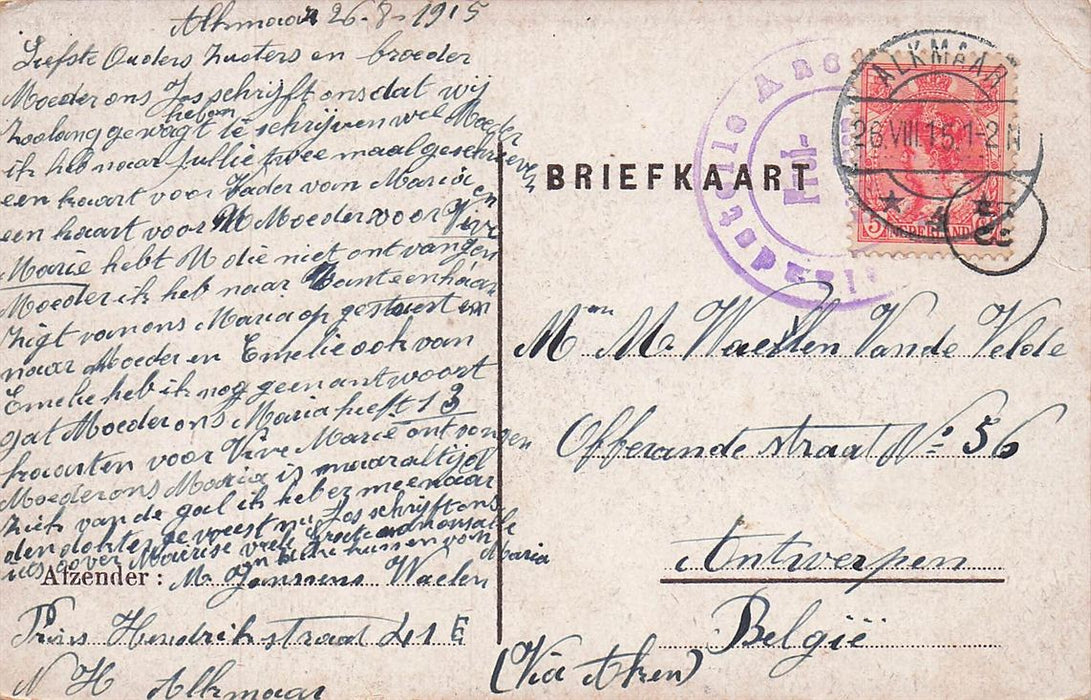 Alkmaar 26-8-1915
Liefste Ouders Zusters en broeder
Moeder ons Jos schrijft ons dat wij
zoolang gewagt heben te schrijven wel Moeder
ik heb naar Jullie twee maal geschreven
een kaart voor Vader van Maria en
een kaart voor U Moeder voor Vive
Marie hebt U die niet ontvangen
Moeder ik heb naar Tante een kaar
zigt van ons Maria op gestuert en
naar Moeder en Emelie ook van
Emelie heb ik nog geen antwoort
gat Moeder ons Maria heeft 13
kaarten voor Vive Marie ontvonsen
Moeder ons Maria is maar altijd
ziek van de gal ik heb er mee naar
den dokter geweest nu Jos schrijft ons
iets over Maurise vele groete van ons alle
en kussen van Maria
Afzender: M Janssens Waelen
Prins Hendrikstraat 41 E
N H Alkmaar
BRIEFKAART
ALKMAAR
26.VIII.15.1-2N
4
NEDERLAND
Men Me Waelen Van de Velde
Offerande straat No 56
Antwerpen
België
(Via Aken)